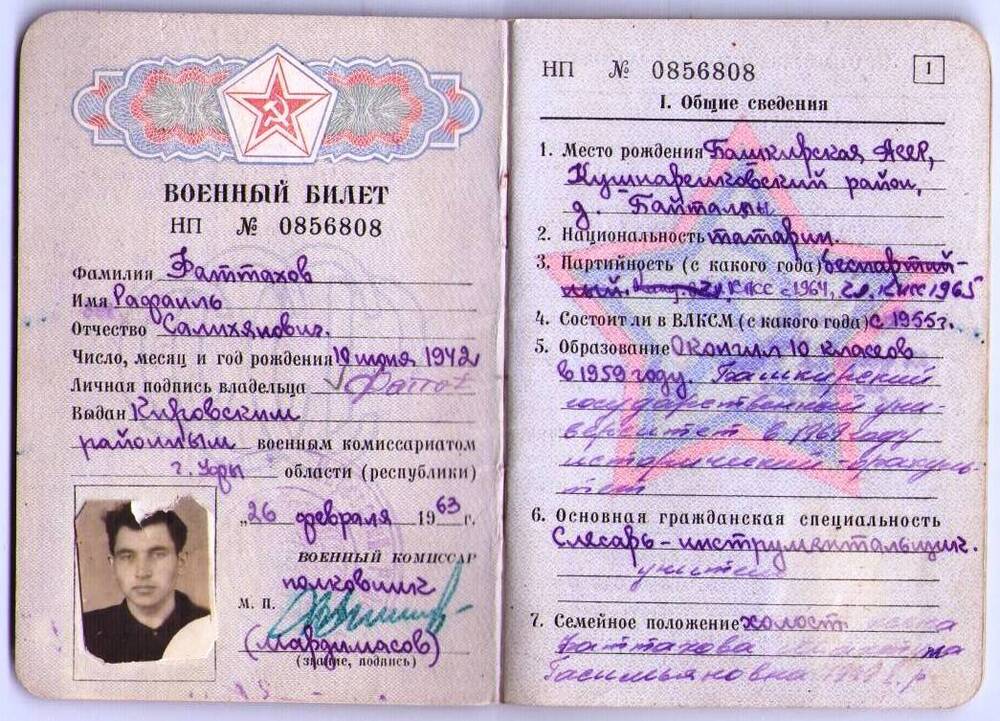 ВОЕННЫЙ БИЛЕТ
НП № 0856808
Фамилия Фаттахов
Имя Рафаиль
Отчество Салихянович.
Число, месяц и год рождения 10 июня 1942
Личная подпись владельца
Выдан Кировским
районным военным комиссариатом
г. Уфы области (республики)
„26 февраля 1963 г.
ВОЕННЫЙ КОМИССАР
полковник
М. П.
(Мардимасов)
(звание, подпись)
НП № 0856808
1
I. Общие сведения
1. Место рождения Башкирская АССР,
Кушнаренковский район,
д. Байталлы
2. Национальность татарин.
3. Партийность (с какого года) беспартий-
ный. КПСС с 1964, КПСС 1965
4. Состоит ли в ВЛКСМ (с какого года) с 1955 г.
5. Образование Окончил 10 классов
в 1959 году. Башкирский
государственный уни-
верситет в 1969 году
исторический факуль-
тет
6. Основная гражданская специальность
Слесарь-инструментальщик.
учитель
7. Семейное положение холост жена
Фаттахова
Гасимьяновна